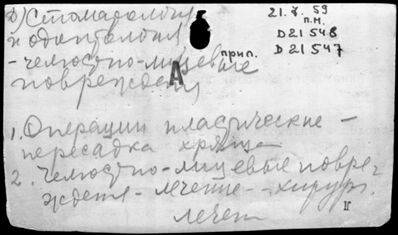 Д) Стоматология
и одонтология
- челюстно-лицевые
повреждения
прип.
А
21.7.59
п.м.
D 21548
D 21547
1. Операции пластические -
пересадка хряща
2. Челюстно-лицевые повре-
ждения - лечение - хирург.
лечен